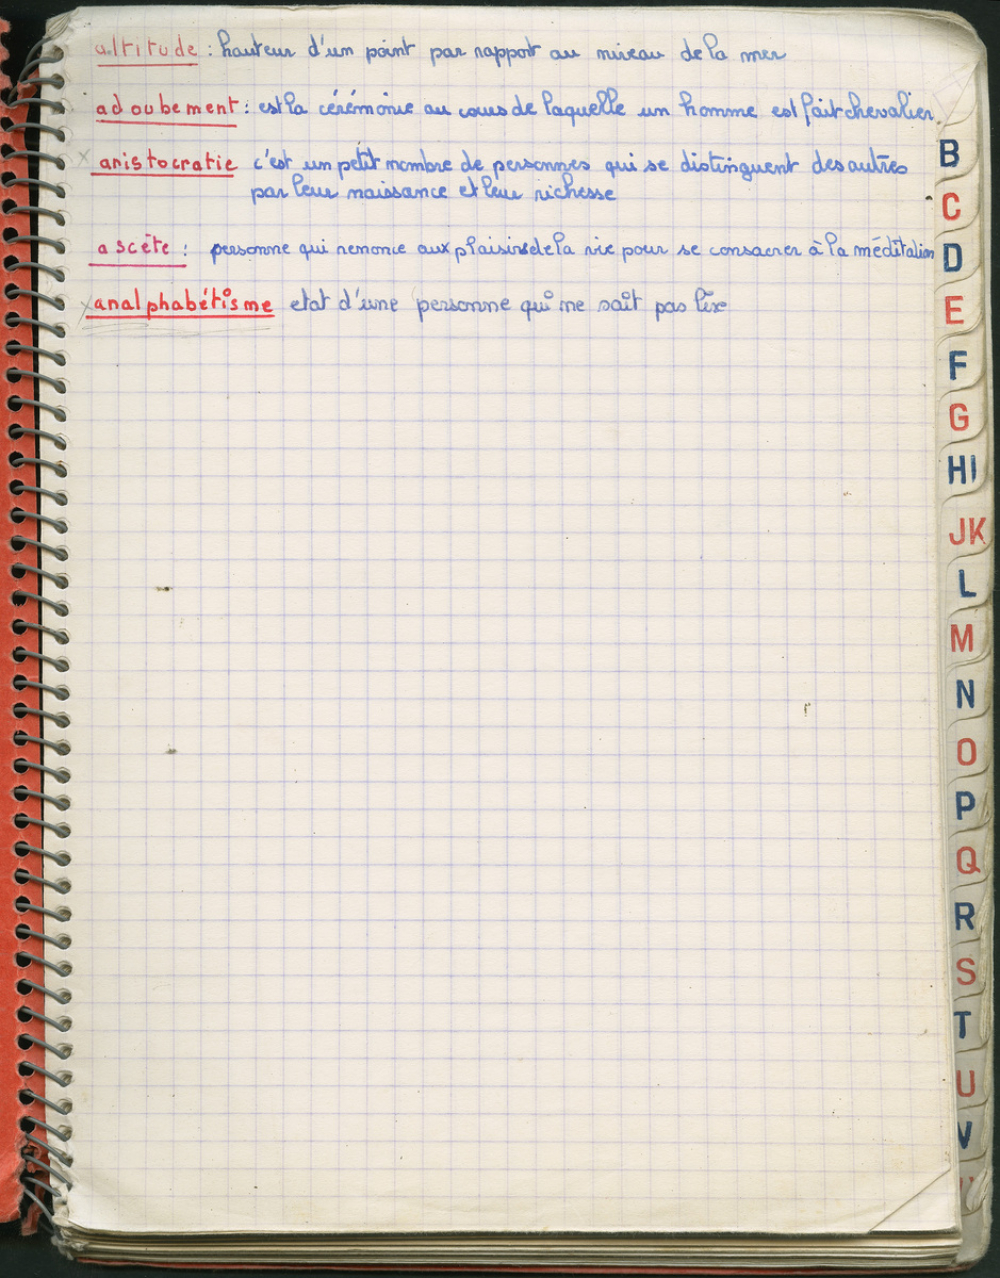 altitude : hauteur d'un point par rapport au niveau de la mer
adoubement : est la cérémonie au cours de laquelle un homme est fait chevalier.
aristocratie c'est un petit nombre de personnes qui se distinguent des autres
par leur naissance et leur richesse
ascète : personne qui renonce aux plaisirs de la vie pour se consacrer à la méditation
analphabétisme etat d'une personne qui ne sait pas lire
B
C
D
E
F
G
HI
JK
L
M
N
O
P
Q
R
S
T
U
V